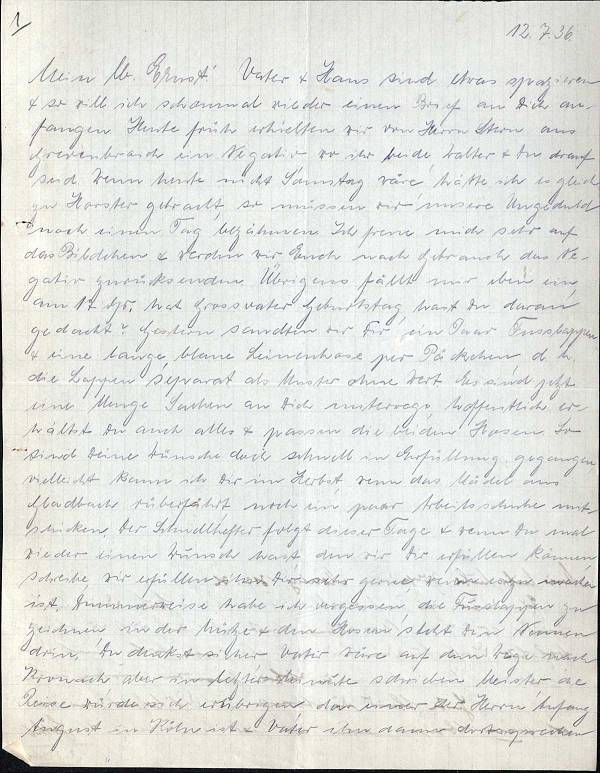 1
12.7.36.
Mein lb. Ernst! Vater & Hans sind etwas spazieren
& so will ich schonmal wieder einen Brief an Dich an-
fangen Heute früh erhielten wir von Herrn Stern aus
Grevenbroich ein Negativ wo ihr beide, Walter & Du drauf
seid. Wenn heute nicht Samstag wäre, hätte ich es gleich
zu Horster gebracht, so müssen wir unsere Ungeduld
noch einen Tag bezähmen. Ich freue mich sehr auf
das Bildchen & werden wir Euch nach Gebrauch das Ne-
gativ zurücksenden. Übrigens fällt mir eben ein,
am 17. ds. hat Grossvater Geburtstag hast Du daran
gedacht? Gestern sandten wir Dir ein Paar Fusslappen
& eine lange blaue Leinenhose per Päckchen d. h.
die Lappen separat als Muster ohne Wert. Es sind jetzt
eine Menge Sachen an Dich unterwegs, hoffentlich er-
hältst Du auch alles & passen die beiden Hosen. So
sind Deine Wünsche doch schnell in Erfüllung gegangen
vielleicht kann ich Dir im Herbst, wenn das Mädel aus
Gladbach rüberfährt noch ein paar Arbeitsschuhe mit-
schicken. Der Schnellhefter folgt dieser Tage & wenn Du mal
wieder einen Wunsch hast den wir Dir erfüllen können
schreibe, wir erfüllen Dir sehr gerne, wenn es zu machen
ist. Dummerweise habe ich vergessen, die Fusslappen zu
zeichnen, in der Mütze & den Hosen steht Dein Namen
drin. Du denkst sicher Vater wäre auf dem Wege nach
Kronach aber in letzter Minute schrieben Meister die
Reise würde sich erübrigen da einer der Herren Anfang
August in Köln ist & Vater ihn dann dort sprechen